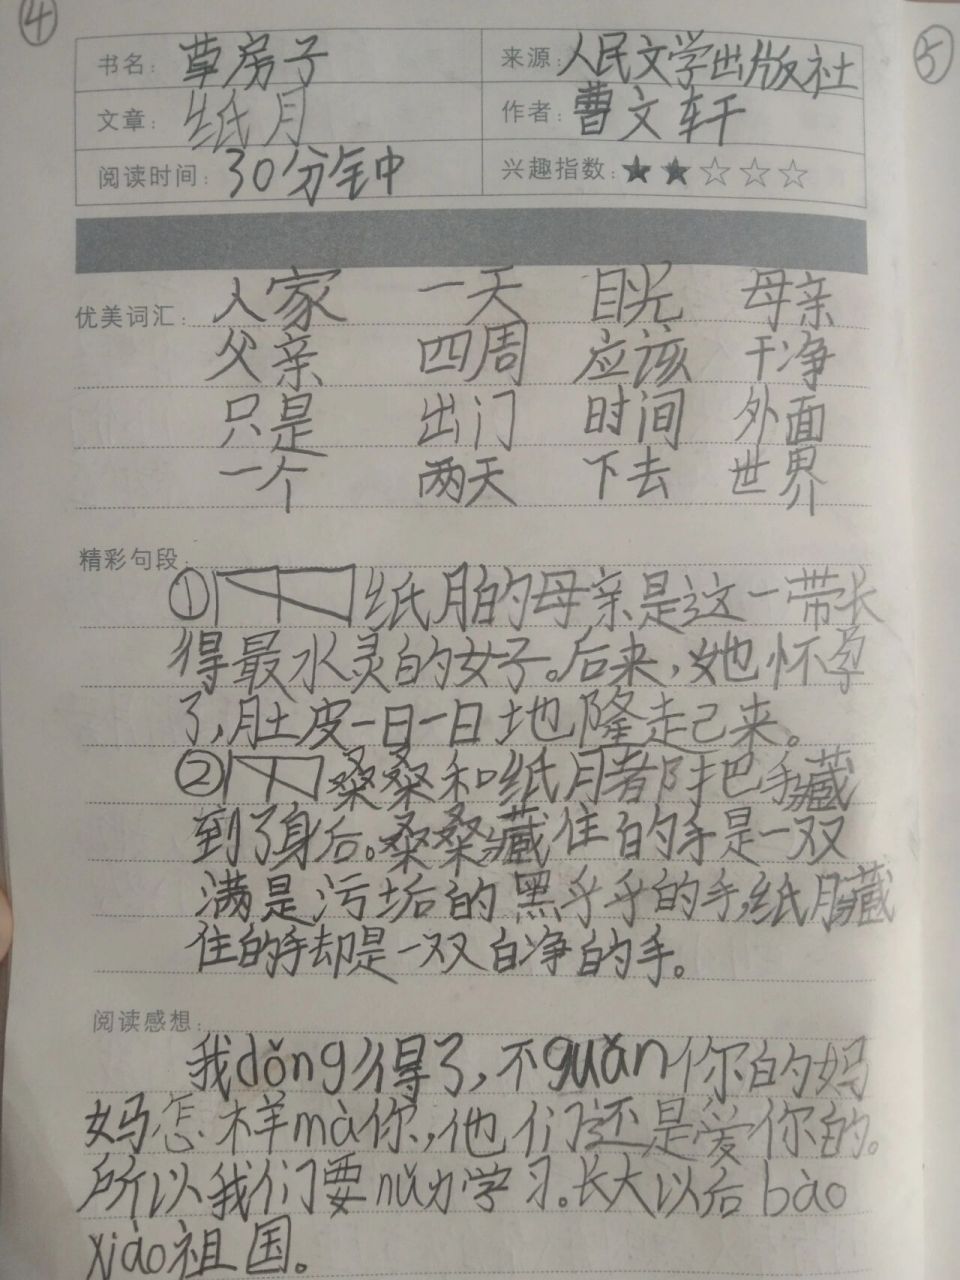 ④
⑤
书名：草房子 来源：人民文学出版社
文章：纸月 作者：曹文轩
阅读时间：30分钟 兴趣指数：★★☆☆☆
优美词汇：人家 一天 目光 母亲
父亲 四周 应该 干净
只是 出门 时间 外面
一个 两天 下去 世界
精彩句段：
①纸月的母亲是这一带长
得最水灵的女子。后来，她怀孕
了，肚皮一日一日地隆起来。
②桑桑和纸月都把手藏
到了身后。桑桑藏住的手是一双
满是污垢的黑乎乎的手，纸月藏
住的手却是一双白净的手。
阅读感想：
我dǒng得了，不guǎn你的妈
妈怎样mà你，他们还是爱你的。
所以我们要nǔ力学习。长大以后bào
xiào祖国。